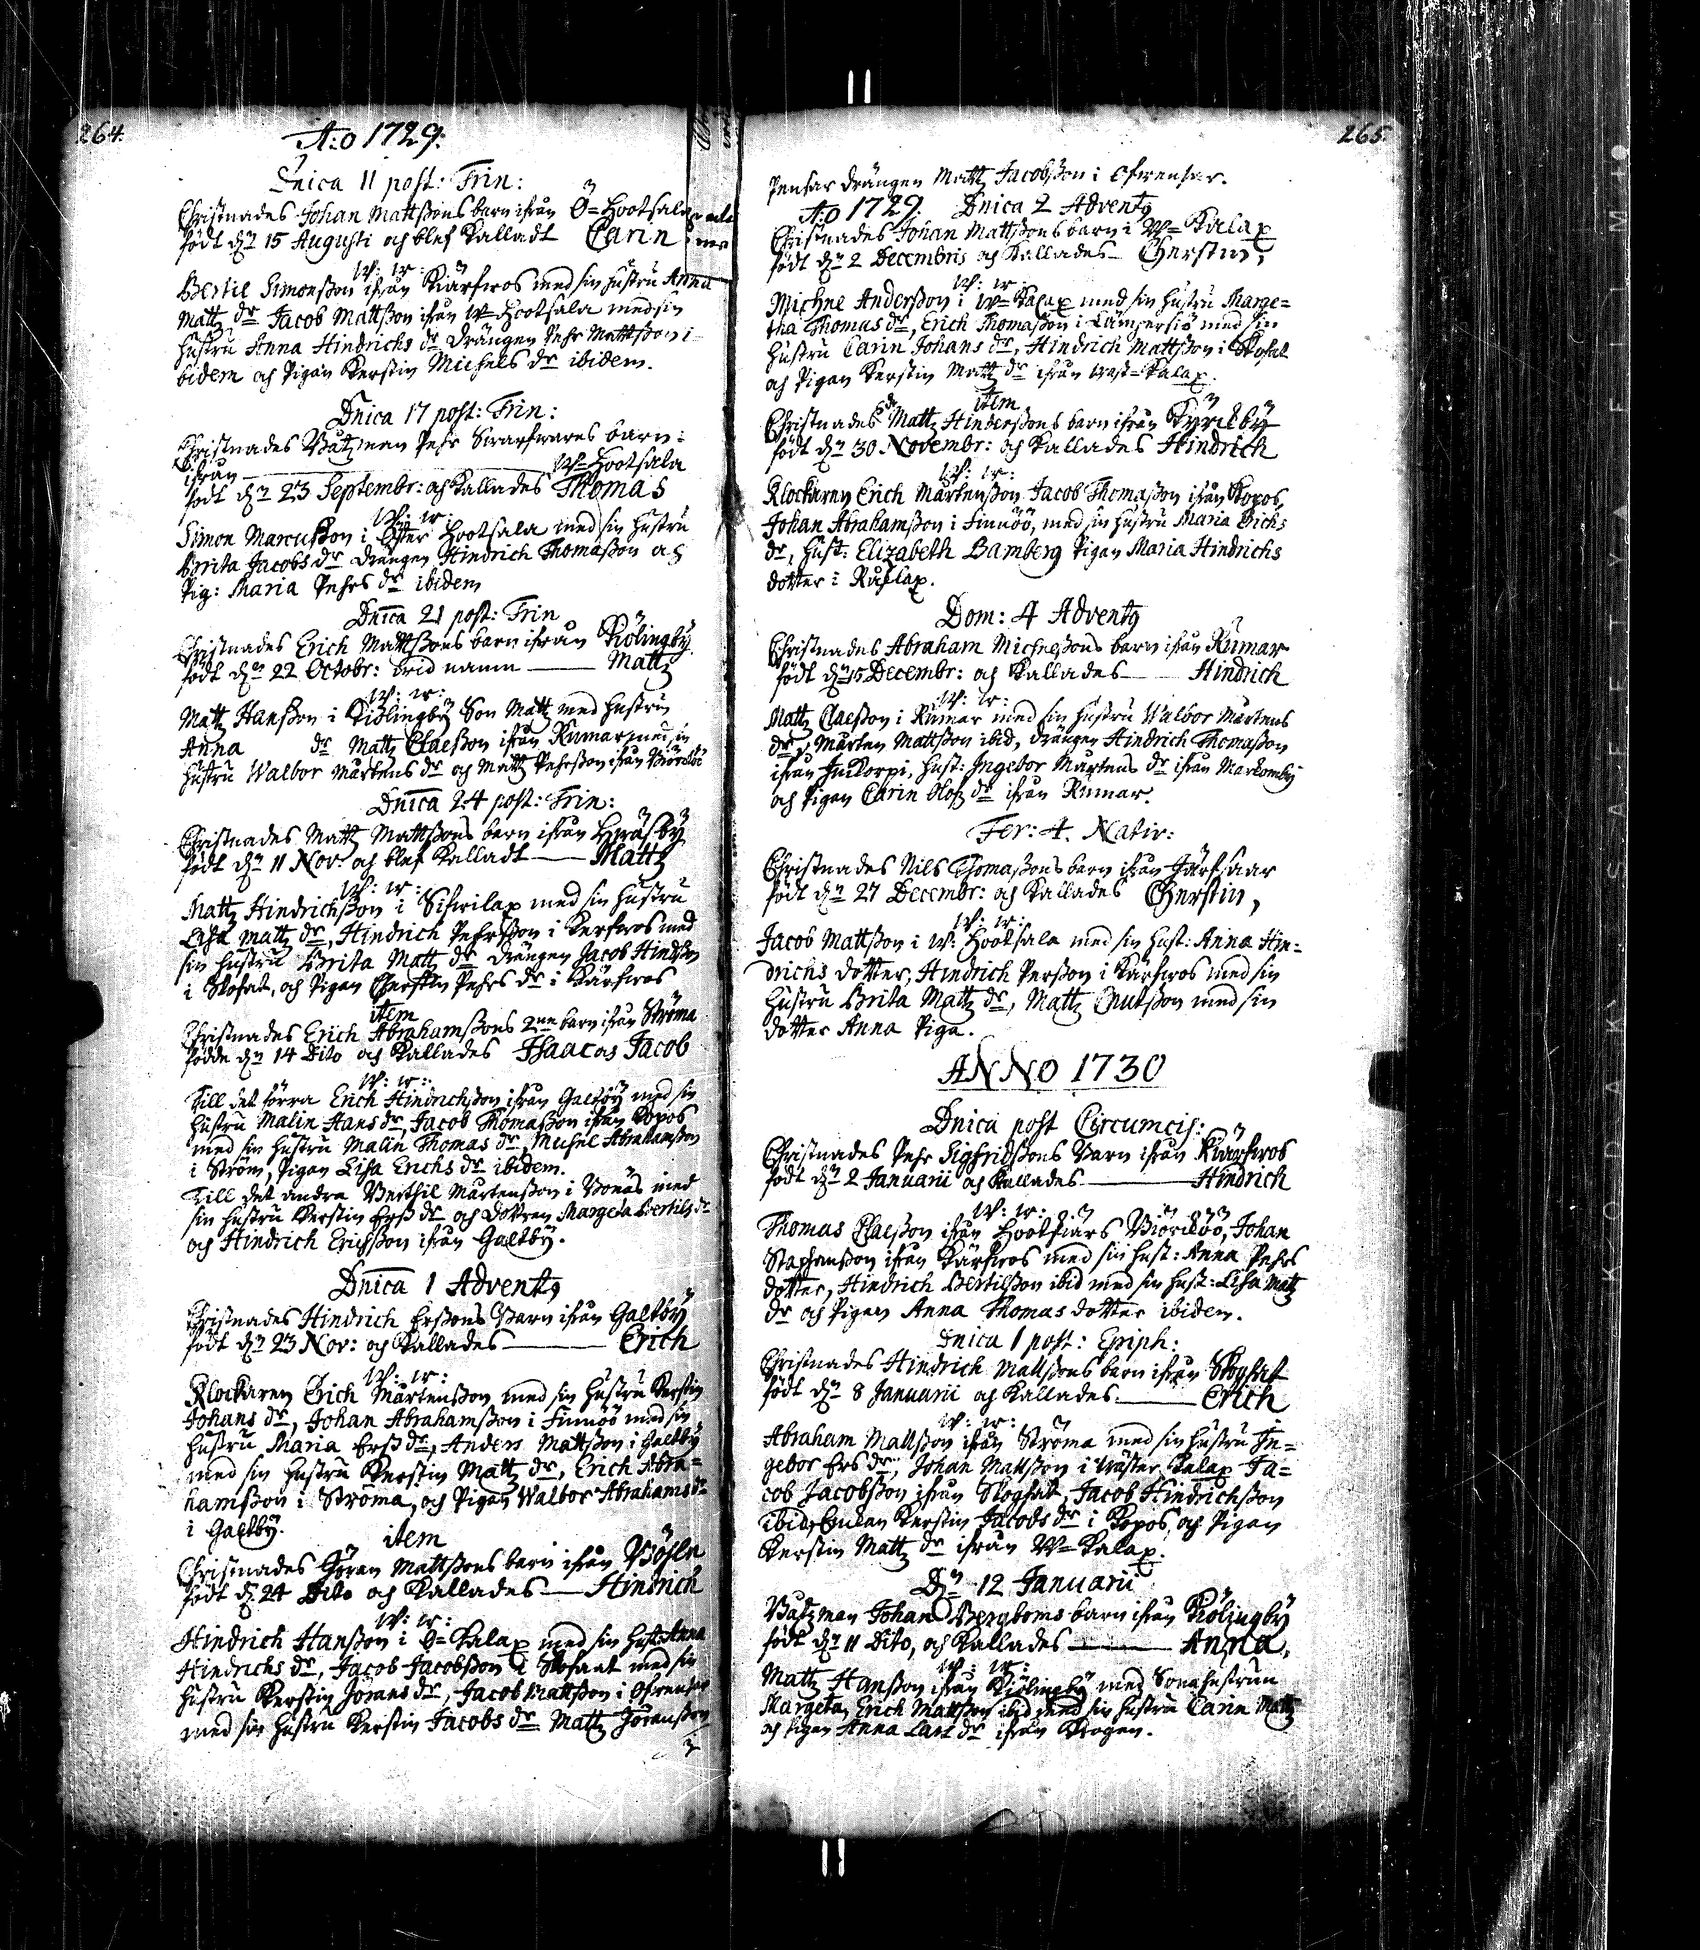 264.
A:o 1729:
Dnica 11 post: Trin:
Christnades Johan Mattßons barn ifrån Ö=Hootsala
födt dn 15 Augusti och blef Kalladt Carin
W: w:
Bertil Simonsson ifrån Kärfwos med sin hustru Anna
Matz dr Jacob Mattßon ifrån W=Hootsala med sin
hustru Anna Hindrichs dr drängen Pehr Mattßon i
bidem och Pigan Kerstin Michels dr ibidem.
Dnica 17 post: Trin:
Christnades Båtzman Pehr Swarfwares barn:
ifrån W=Hootsala
födt dn 23 Septembr: och Kallades Thomas
W: w:
Simon Marcusson i Öster Hootsala med sin hustru
Brita Jacobs dr drängen Hindrich Thomasson och
Pig: Maria Pehrs dr ibidem
Dnica 21 post: Trin
Christnades Erich Mattßons barn ifrån Kölingby
födt dn 22 Octobr: wid namn Mattz
W: w:
Matz Hansson i Kiölingby Son Matz med hustru
Anna dr Matz Claesson ifrån Rumar med sin
hustru Walbor Mårtens dr och Matz Pehrsson ifrån Biörckö
Dnica 24 post: Trin:
Christnades Matz Mattßons barn ifrån Gräsby
födt dn 11 Nov och blef Kalladt Mattz
W: w:
Matz Hindrichsson i Sifwilax med sin hustru
Lisa Matz dr, Hindrich Pehrsson i Kerfwos med
sin hustru Brita Matz dr drängen Jacob Hindßon
i Skofat, och Pigan Cherstin Pehrs dr i Kärfwos
item
Christnades Erich Abrahamssons 2ne barn ifrån Ströma
födde dn 14 Dito och Kallades Isaac as Jacob
W: w:
Till det förra Erich Hindrichsson ifrån Galtby med sin
hustru Malin Hans dr, Jacob Thomasson ifrån Kopos
med sin hustru Malin Thomas dr, Michel Abrahamsson
i Ström, Pigan Lisa Erichs dr ibidem.
Till det andra Berthil Mårtensson i Bonäs med
sin hustru Kerstin Erß dr och dottren Margeta Bertils dr
och Hindrich Erichsson ifrån Galtby.
Dnica 1 Advent9
Christnades Hindrich Erssons Barn ifrån Galtby
födt dn 23 Nov: och Kallades Erich
W: w:
Klockaren Erich Mårtensson med sin hustru Kerstin
Johans dr, Johan Abrahamsson i Finnöö med sin
hustru Maria Erß dr, Anders Mattsson i Galtby
med sin hustru Kerstin Matz dr, Erich Abra=
hamsson i Ströma, och Pigan Walbor Abrahams dr
i Galtby.
item
Christnades Jöran Mattssons barn ifrån Böhle
födt d. 24 Dito och Kallades Hindrich
W: w:
Hindrich Hansson i Ö=Kalax med sin hust: Anna
Hindrichs dr, Jacob Jacobsson i Skofaat med sin
hustru Kerstin Jörans dr, Jacob Mattsson i Ofwensar
med sin hustru Kerstin Jacobs dr Matz Joransson
265
Pensar drängen Matz Jacobsson i Ofwensar.
A:o 1729 Dnica 2 Advent9
Christnades Johan Mattssons barn i W=Kalax
födt dn 2 Decembris och Kallades Cherstin,
W: w:
Michel Andersson i W=Kalax med sin hustru Marge=
tha Thomas dr, Erich Thomasson i Lampersiö med sin
hustru Carin Johans dr, Hindrich Mattsson i Skofat
och Pigan Kerstin Matz dr ifrån Wäst=Kalax.
item
Christnades Matz Hinderssons barn ifrån Kyrckby
födt dn 30 Novembr: och Kallades Hindrich
W: w:
Klockaren Erich Mårtensson Jacob Thomasson ifrån Kopos,
Johan Abrahamsson i Finnöö, med sin hustru Maria Erichs
dr, hust: Elizabeth Bamberg Pigan Maria Hindrichs
dotter i Rafsax.
Dom: 4 Advent9
Christnades Abraham Michelssons barn ifrån Rumar
födt dn 15 Decembr: och Kallades Hindrich
W: w:
Matz Claesson i Rumar med sin hustru Walbor Mårtens
dr, Mårten Mattsson ibid, drängen Hindrich Thomasson
ifrån Juckorpi, hust: Ingebor Mårtens dr ifrån Markomby
och Pigan Carin Olofs dr ifrån Rumar.
Fer: 4. Nativ:
Christnades Nils Thomassons barn ifrån Järfsaar
födt dn 27 Decembr: och Kallades Cherstin,
W: w:
Jacob Mattsson i W: Hootsala med sin hust: Anna Hin=
drichs dotter, Hindrich Persson i Kärfwos med sin
hustru Brita Matz dr, Matz Cnutsson med sin
dotter Anna Piga.
ANNO 1730
Dnica post Circumcis:
Christnades Pehr Sigfridssons Barn ifrån Kiärfwos
födt dn 2 Januarii och Kallades Hindrich
W: w:
Thomas Claesson ifrån Hootfiärs Biörcköö, Johan
Staphansson ifrån Kärfwos med sin hust: Anna Pehrs
dotter, Hindrich Bertilsson ibid med sin hust: Lisa Matz
dr och Pigan Anna Thomas dotter ibidem.
Dnica 1 post: Epiph:
Christnades Hindrich Mattssons barn ifrån Skoghat
födt dn 8 Januarii och Kallades Erich
W: w:
Abraham Mattsson ifrån Ströma med sin hustru In=
gebor Ers dr, Johan Mattsson i Wäster Kalax Ja=
cob Jacobsson ifrån Skoghat, Jacob Hindrichsson
ibid, Enkan Kerstin Jacobs dr i Kopos, och Pigan
Kerstin Matz dr ifrån W=Kalax.
Dn 12 Januarii
Båtzman Johan Bergboms barn ifrån Kölingby
födt dn 11 Dito, och Kallades Anna,
W: w:
Matz Hansson ifrån Kiölingby med Sonehustrun
Margeta, Erich Mattsson ibid med sin hustru Carin Matz
och Pigan Anna Lars dr ifrån Krogen.
KODAK SAFETY FILM